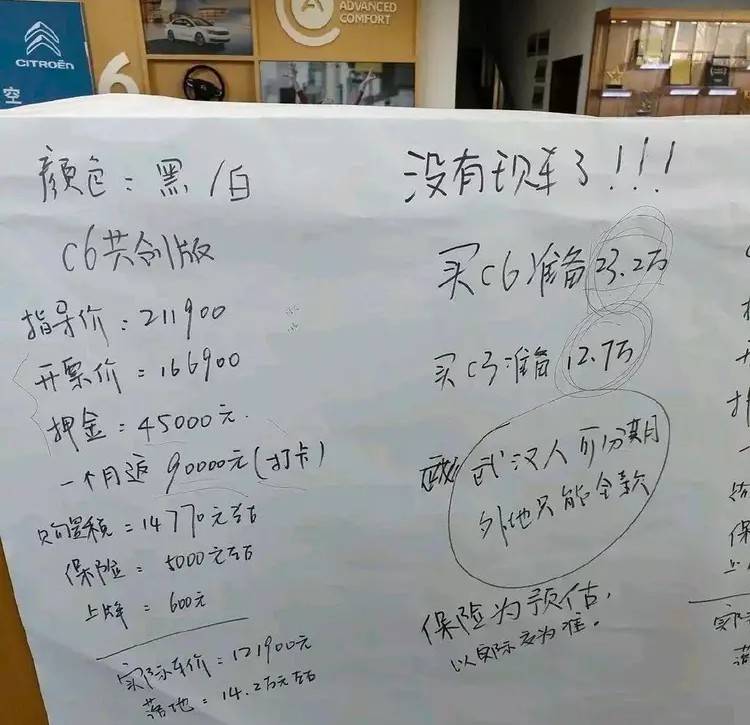 CITROËN
空
6
ADVANCED
COMFORT
颜色：黑/白
C6共创版
指导价：211900
开票价=166900
押金：45000元.
一个月返90000元(打卡)
购置税=14770元左右
保险=5000元左右
上牌=600元
实际车价=121900元
落地=14.2万元左右
没有现车了!!!
买C6准备23.2万
买C3准备12.7万
武汉人可分期
外地只能全款
保险为预估,
以实际交为准.